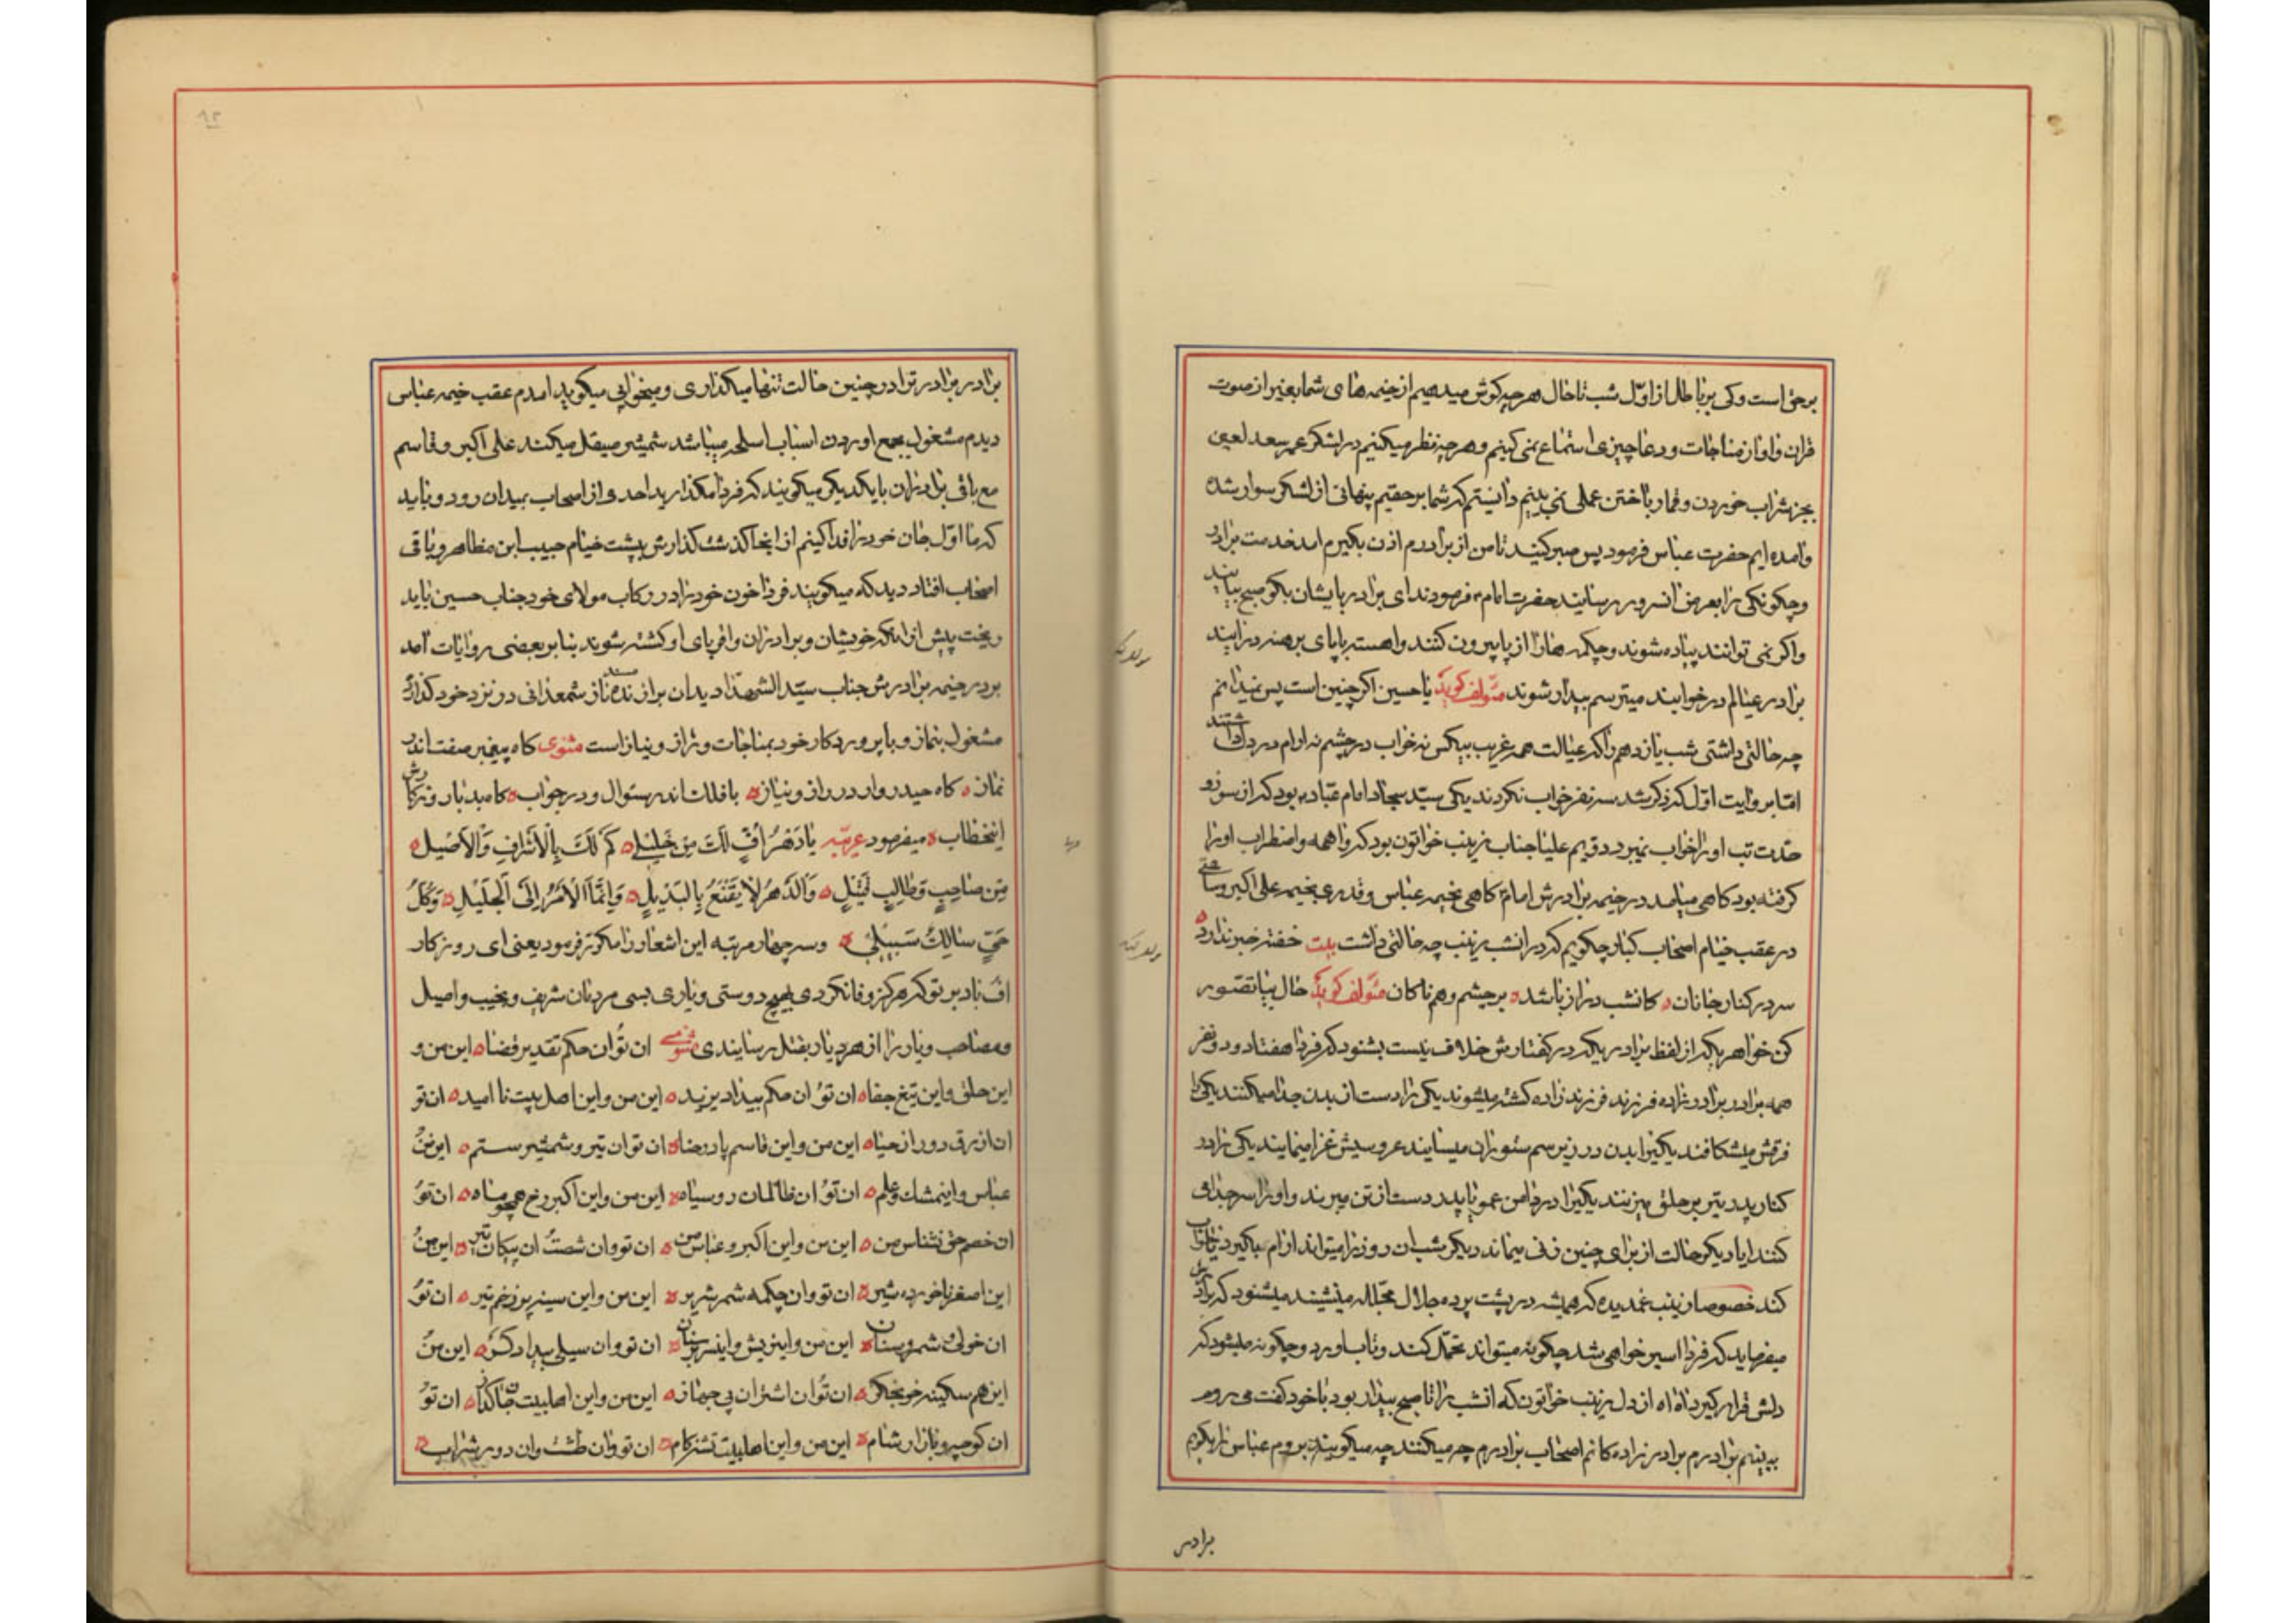 برحق است و کی بر باطل از اول شب تا حال هر چه کوش میدهیم از خیمه های شما بغیر از صوت
قران و اواز مناجات و دعا چیزی استماع نمی کنیم و هر چه نظر میکنیم در لشکر عمر سعد لعین
بجز شراب خوردن و قمار باختن عملی نمی بینم دانستم که شما بر حقیم پنهانی از لشکر سوار شده
وامده ایم حضرت عباس فرمود پس صبر کنید تا من از برادرم اذن بکیرم امد خدمت برادر
و چکونکی را بعرض انسرور رسانید حضرت امام فرمودند ای برادر بایشان بکو صبح بیایند
واکر نمی توانند پیاده شوند و چکمه ها را از پا بیرون کنند واهسته با پای برهنه در ایند
برادر عیالم در خوابند میترسم بیدار شوند مؤلف کوید یا حسین اکر چنین است پس نمیدانم
چه حالتی داشتی شب یازدهم واکه عیالت همه غریب بیکس نه خواب در چشم نه ارام در دل داشتند
اما بروایت اول که ذکر شد سه نفر خواب نکردند یکی سید سجاد امام عباد بود که از سوز و
حدت تب او را خواب نمیبرد دویم علیا جناب زینب خواتون بود که واهمه واضطراب او را
کرفته بود کاهی میامد در خیمه برادرش امام کاهی بخیمه عباس و قدری بخیمه علی اکبر و ساعتی
در عقب خیام اصحاب کبار چکویم که در انشب زینب چه حالتی داشت بیت خفته خبر ندارد
سر در کنار جانان کانشب دراز باشد بر چشم وهم ناکان مؤلف کوید حال بیا تصور
کن خواهر یکه از لفظ برادریکه در کفتارش خلاف نیست بشنود که فردا هفتاد و دو نفر
همه برادر و برادرزاده فرزند فرزند زاده کشته میشوند یکی را دست از بدن جدا میکنند یکی را
فرقش میشکافند یکیرا بدن در زیر سم ستوران میسایند عروسیش عزا مینمایند یکی را در
کنار پدر تیر بر حلق میزنند یکیرا در دامن عمو یا پدر دست از تن میبرند واو را سر جدا می
کنند ایا دیکر حالت از برای چنین زنی میماند دیکر شب ان روز را میتواند ارام بکیرد یا خواب
کند خصوصا زینب غمدیده که همیشه در پشت پرده جلال مجلله مینشیند میشنود که برادرش
میفرماید که فردا اسیر خواهی شد چکونه میتواند تحمل کند و تاب اورد و چکونه میشود که
دلش قرار کیرد اه اه از دل زینب خواتون که انشب را تا صبح بیدار بود با خود کفت می روم
به بینم برادرم برادر زاده کانم اصحاب برادرم چه میکنند چه میکویند بروم عباس را بکویم
برادر
برادر برادر ترا در چنین حالت تنها میکذاری و میخوابی میکوید امدم عقب خیمه عباس
دیدم مشغول بجمع اوردن اسباب اسلحه میباشد شمشیر صیقل میکند علی اکبر و قاسم
مع باقی برادران بایکدیکر میکویند که فردا مکذارید احدی از اصحاب بمیدان رود و باید
که ما اول جان خود را فدا کنیم از اینجا کذشت کذارش بپشت خیام حبیب ابن مظاهر و باقی
اصحاب افتاد دید که میکویند فردا خون خود را در رکاب مولای خود جناب حسین باید
ریخت پیش از انکه خویشان و برادران واقربای او کشته شوند بنا بر بعضی روایات آمد
بر در خیمه برادرش جناب سید الشهدا دید ان برازنده مسند ناز شمعدانی در نزد خود کذارد
مشغول بنماز و با پروردکار خود بمناجات و راز و نیاز است مثنوی کاه پیغمبر صفت اندر
نماز کاه حیدر وار در راز و نیاز با فلک اندر سئوال و در جواب کامد بار و زکارش
اینخطاب میفرمود عربیه یا دَهْرُ اُفٍّ لَكَ مِنْ خَلیلٍ کَمْ لَكَ بِالْاَشْرافِ وَالْاَصیلِ
مِنْ صاحِبٍ وَطالِبٍ قَتیلٍ وَالدَّهْرُ لا یَقْنَعُ بِالْبَدیلِ وَاِنَّمَا الْاَمْرُ اِلَی الْجَلیلِ وَکُلُّ
حَیٍّ سالِكٌ سَبیلی و سه چهار مرتبه این اشعار را مکرر فرمود یعنی ای روزکار
اف باد بر تو که هرکز وفا نکردی بهیچ دوستی و یاری بسی مردان شریف و نجیب و اصیل
و مصاحب و یار را از هر دیار بقتل رسانیدی مثنوی ان تو ان حکم تقدیر و قضا این من و
این حلق و این تیغ جفا ان تو ان حکم بیداد یزید این من و این اهل بیت نا امید ان تو
ان ازرق دور از حیا این من و این قاسم پا در حنا ان تو ان تیر و شمشیر ستم این من
عباس و اینمشك و علم ان تو ان ظالمان رو سیاه این من و این اکبر رخ همچو ماه ان تو
ان خصم حق نشناس من این من و این اکبر و عباس من ان تو و ان شصت ان پیکان تیر این من
این اصغر ناخورده شیر ان تو و ان چکمه شمر شریر این من و این سینه پر زخم تیر ان تو
ان خولی و شمر و سنان این من و اینریش و اینسر بر سنان ان تو و ان سیلی بیدادکر این من
این هم سکینه خونجکر ان تو ان اشتران بی جهاز این من و این اهلبیت جانکداز ان تو
ان کوچه و بازار شام این من و این اهلبیت تشنه کام ان تو و ان طشت و ان دور شراب